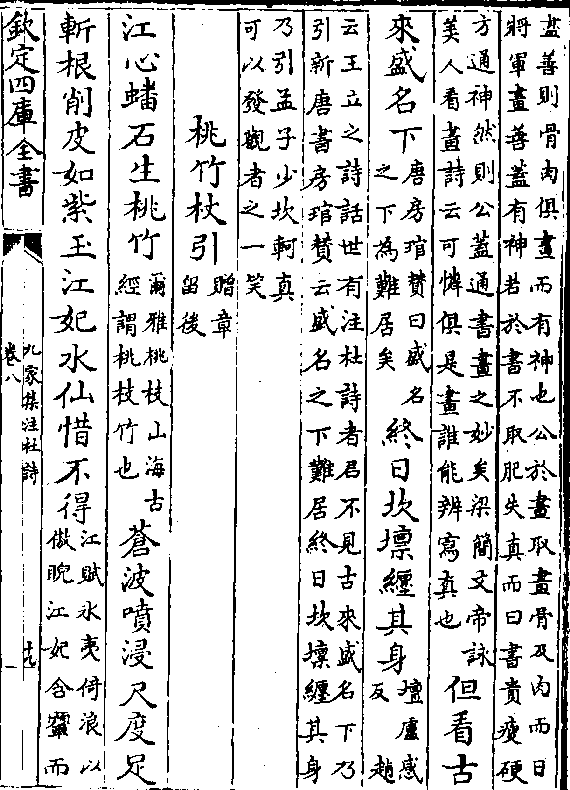 盡善則骨肉俱畫而有神也公於畫取畫骨及肉而曰
將軍畫善蓋有神若於書不取肥失真而曰書貴瘦硬
方通神然則公蓋通書畫之妙矣梁簡文帝詠
美人看畫詩云可憐俱是畫誰能辨寫真也
但看古
來盛名下
唐房琯賛曰盛名
之下為難居矣
終日坎壈纏其身
壈盧感
反 趙
云王立之詩話世有注杜詩者君不見古來盛名下乃
引新唐書房琯賛云盛名之下難居終日坎壈纏其身
乃引孟子少坎軻真
可以發觀者之一笑
桃竹杖引
贈章
留後
江心蟠石生桃竹
爾雅桃枝山海古
經謂桃枝竹也
蒼波噴浸尺度足
斬根削皮如紫玉江妃水仙惜不得
江賦氷夷倚浪以
傲睨江妃含嚬而
欽定四庫全書
九家集注杜詩
卷八
十九